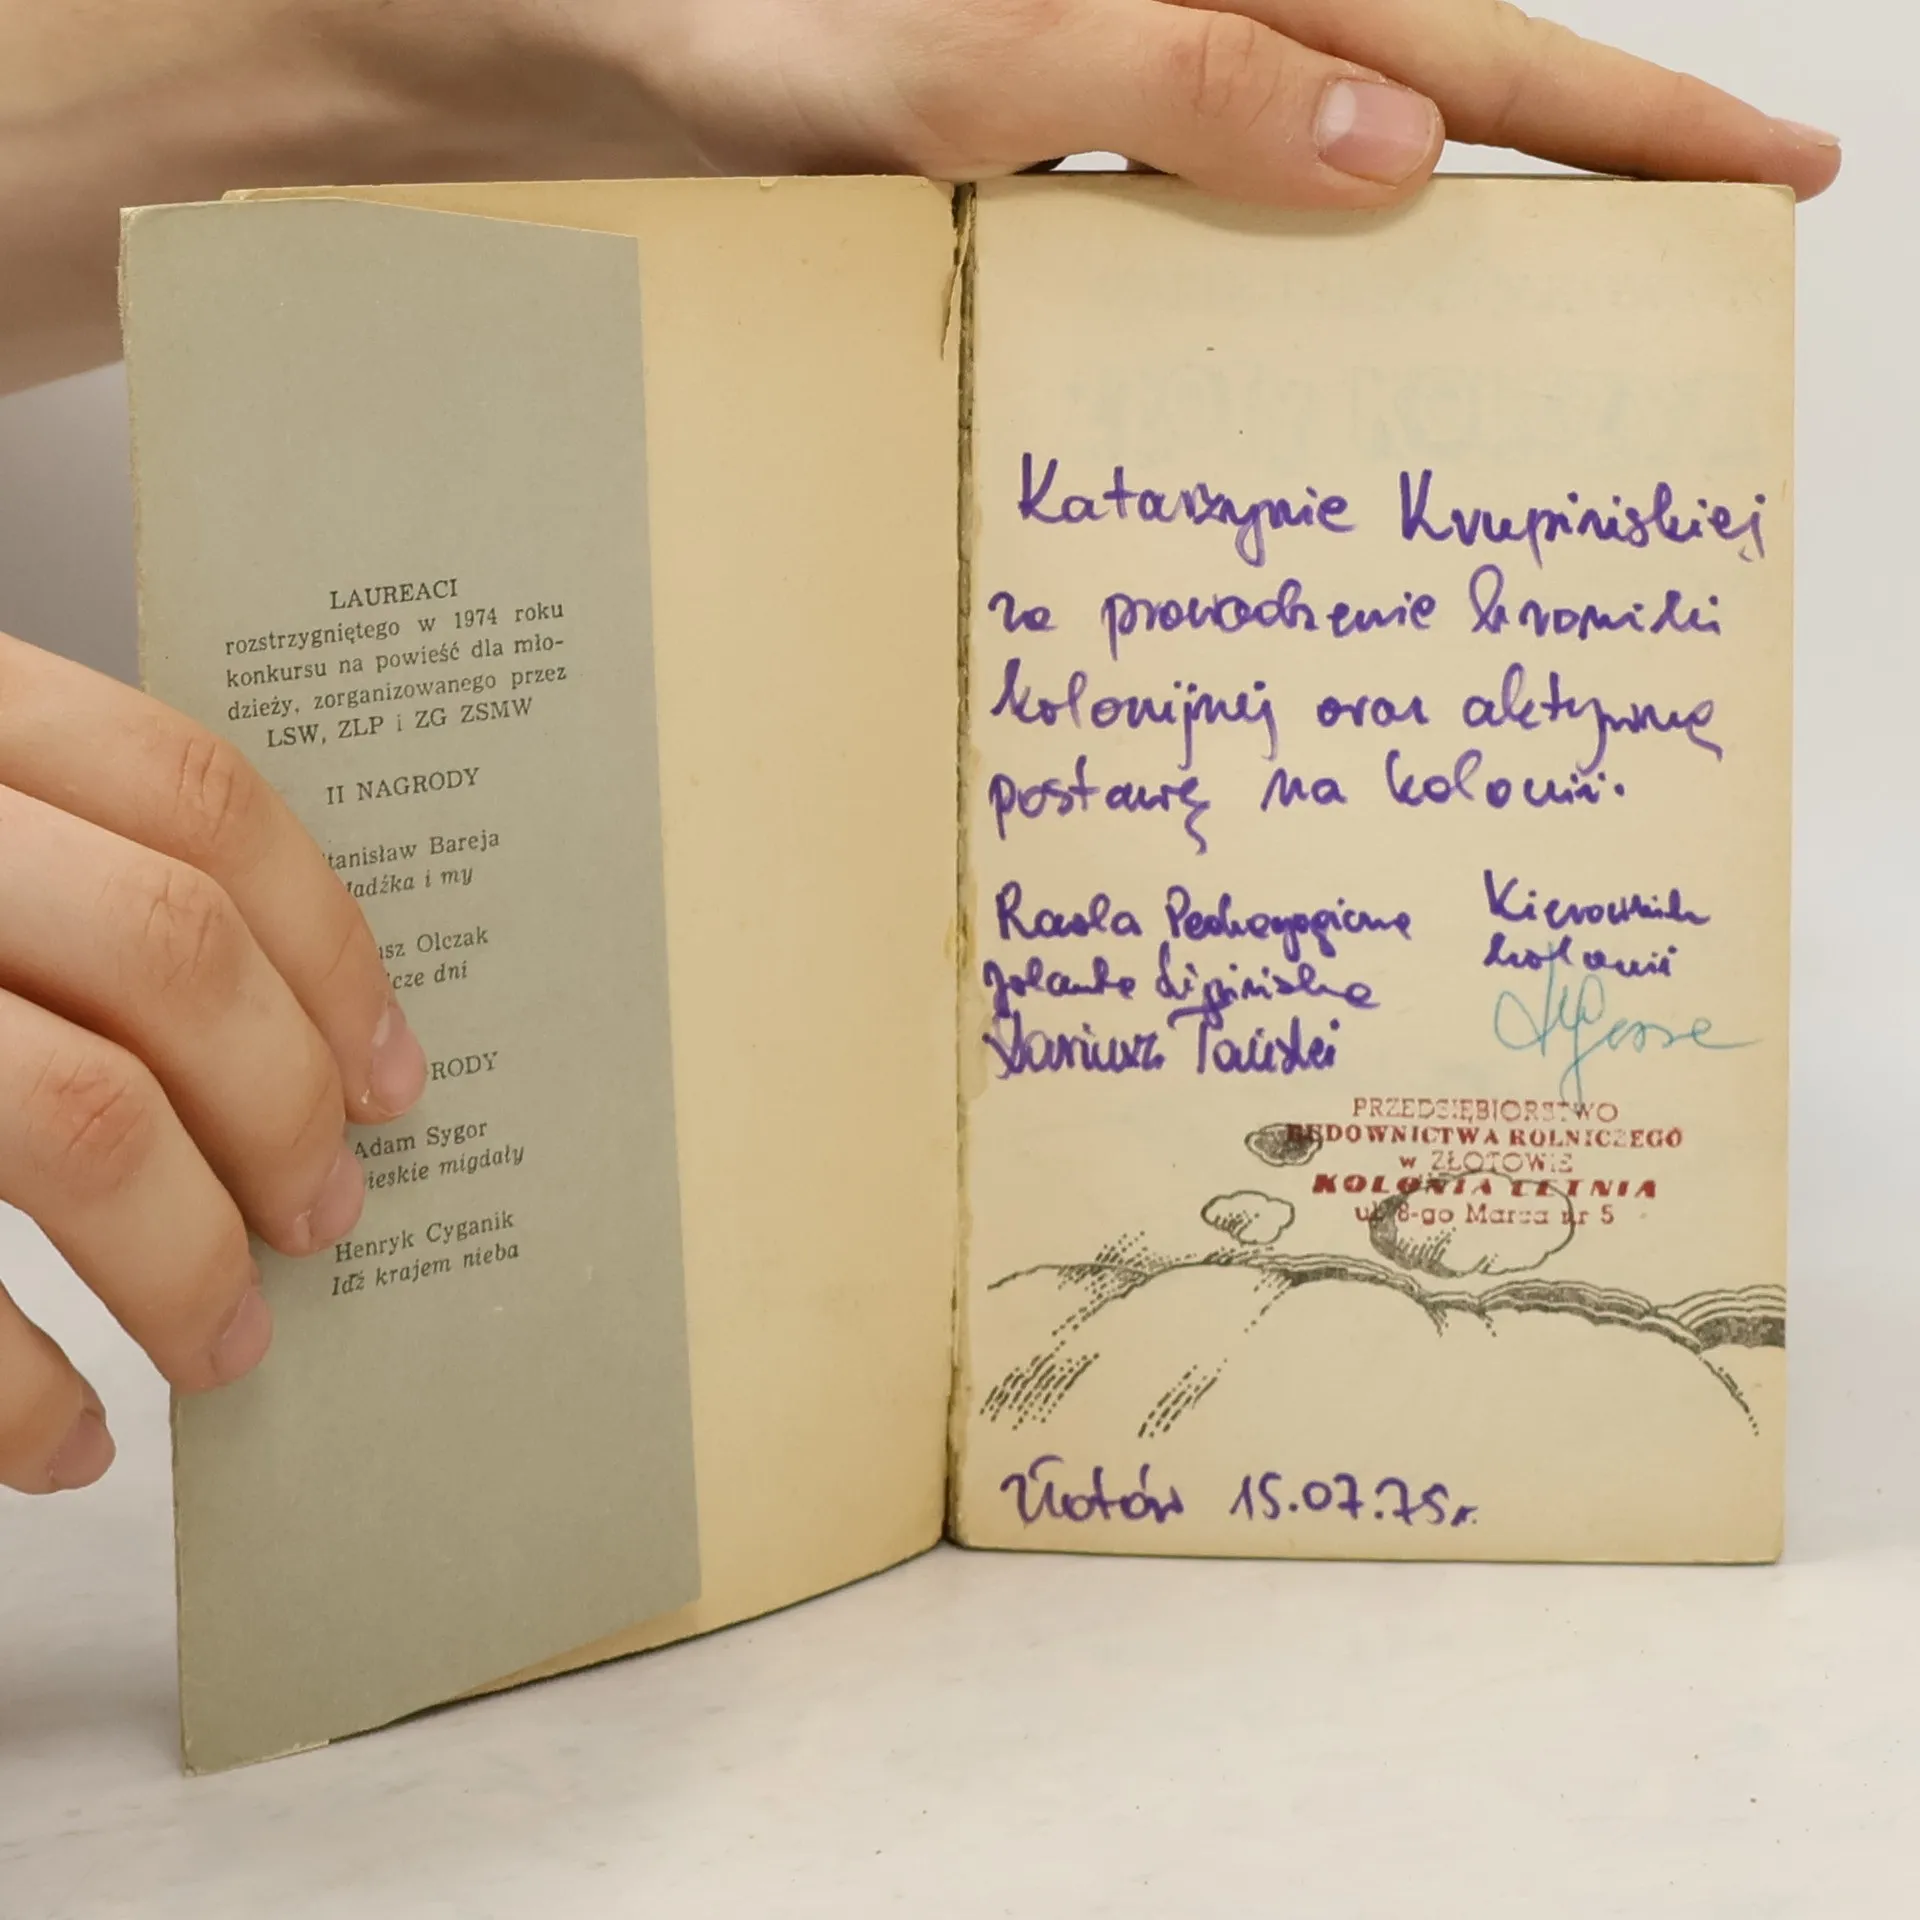 LAUREACI
rozstrzygniętego w 1974 roku
konkursu na powieść dla mło-
dzieży, zorganizowanego przez
LSW, ZLP i ZG ZSMW
II NAGRODY
tanisław Bareja
adźka i my
usz Olczak
cze dni
RODY
Adam Sygor
ieskie migdały
Henryk Cyganik
Idź krajem nieba
Katarzynie Krupińskiej
za prowadzenie kroniki
kolonijnej oraz aktywną
postawę na kolonii.
Rada Pedagogiczna
Jolanta Lipińska
Dariusz
Kierownik
kolonii
PRZEDSIĘBIORSTWO
BUDOWNICTWA ROLNICZEGO
w ZŁOTOWIE
KOLONIA LETNIA
ul. 8-go Marca nr 5
Złotów 15.07.75r.